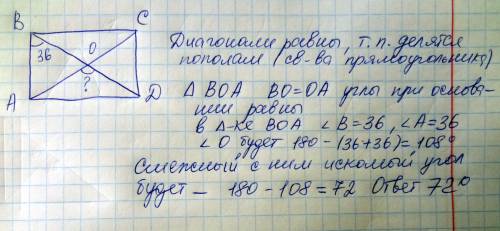 B
C
36
O
?
A
D
Диагонали равны, т.п. делятся
пополам (св-ва прямоугольника)
Δ BOA BO=OA углы при основа-
нии равны
в Δ-ке BOA ∠B=36, ∠A=36
∠O будет 180-(36+36)=108°
Смежный с ним искомый угол
будет — 180-108=72 Ответ 72°